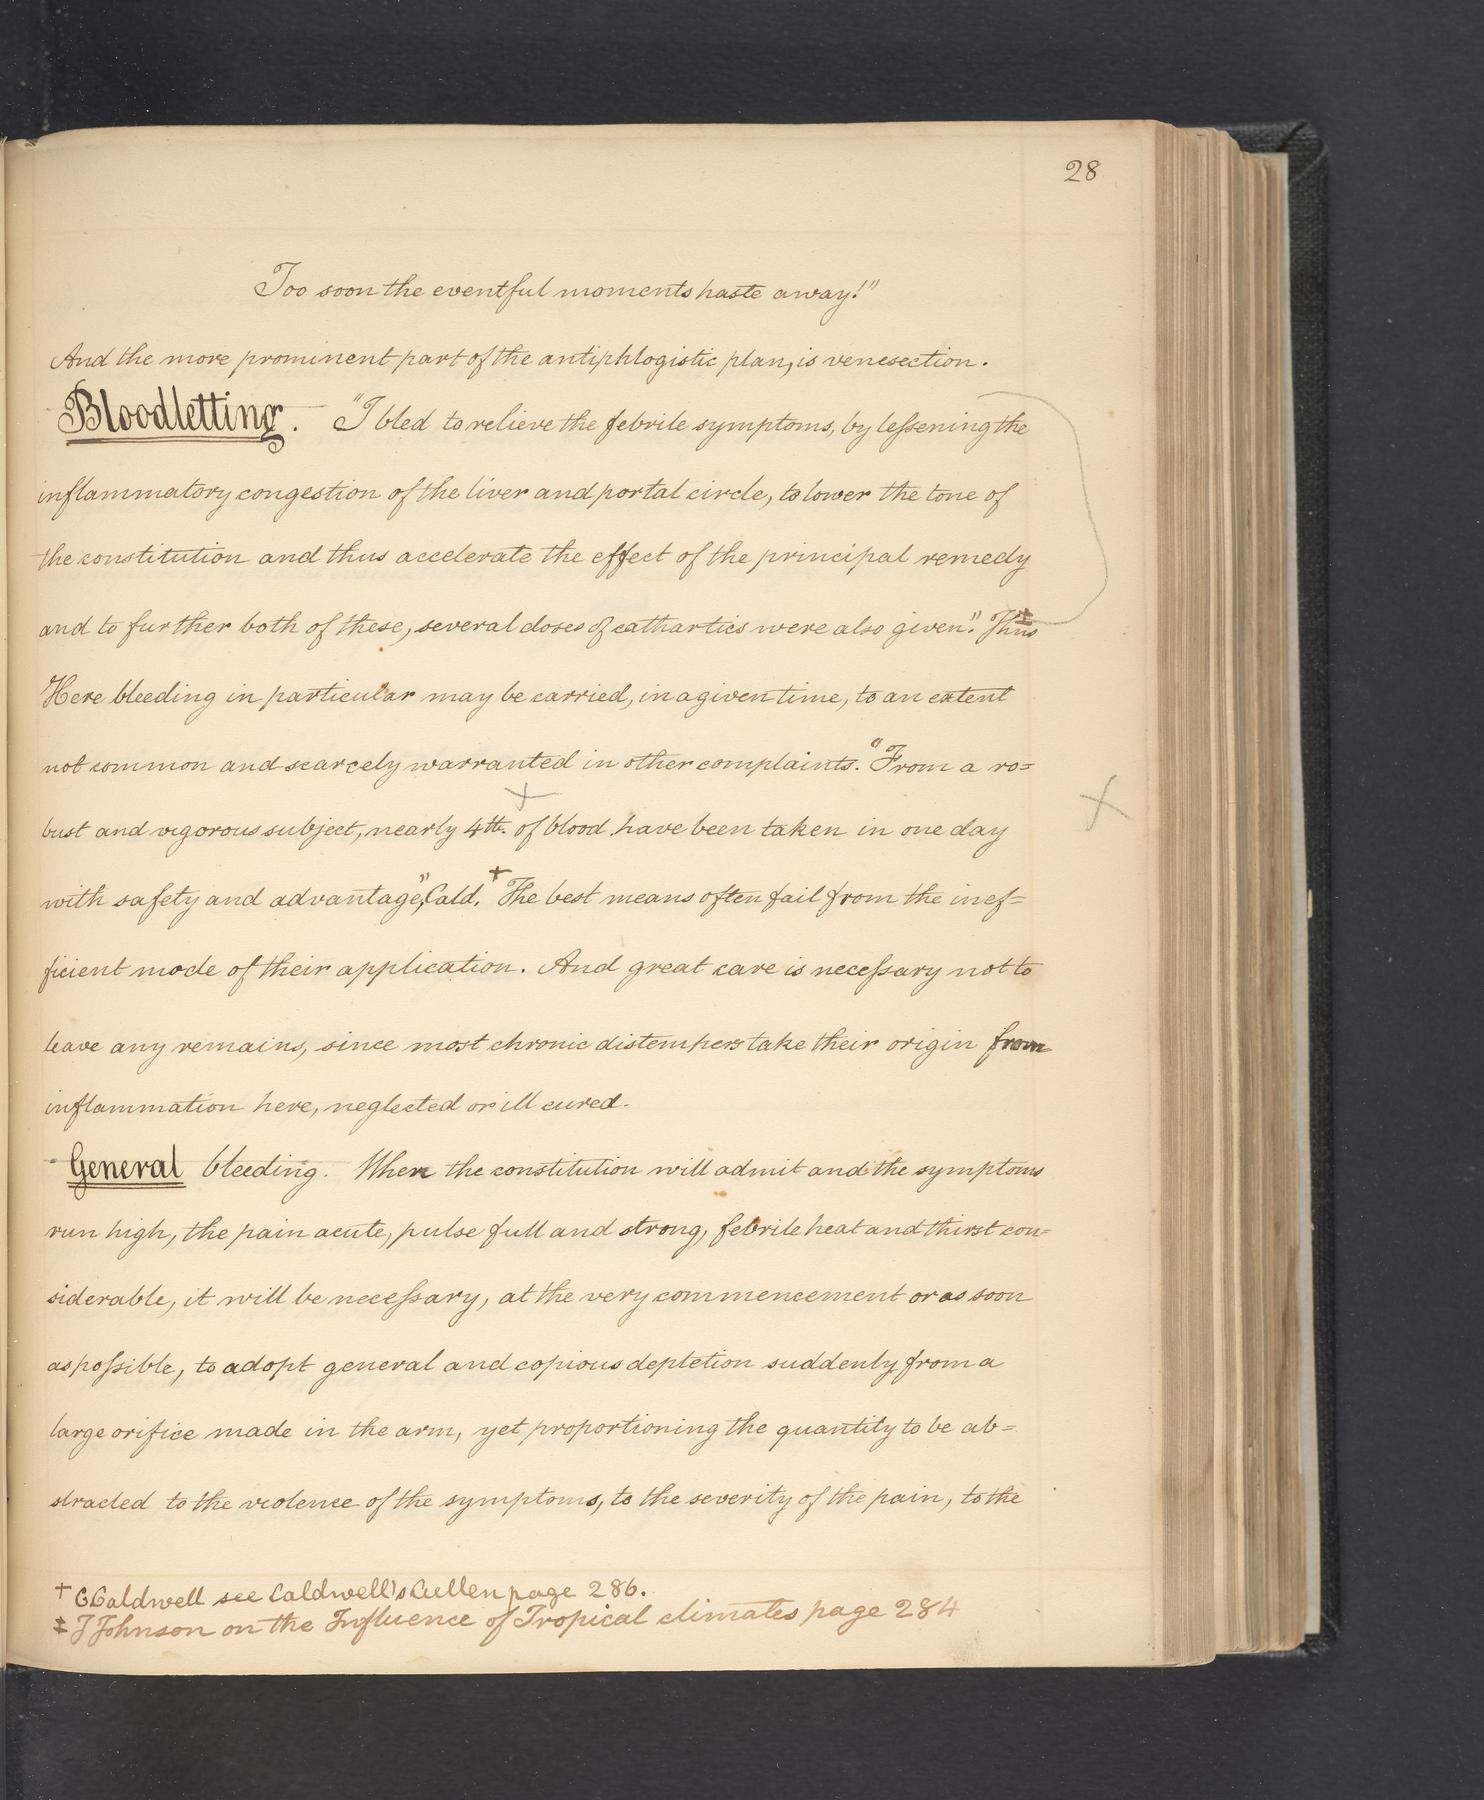 28
Too soon the eventful moments haste away!"
And the more prominent part of the antiphlogistic plan, is venesection.
Bloodletting. "I bled to relieve the febrile symptoms, by leſsening the
inflammatory congestion of the liver and portal circle, to lower the tone of
the constitution and thus accelerate the effect of the principal remedy
and to further both of these, several doses of cathartics were also given". ‡ Thus
Here bleeding in particular may be carried, in a given time, to an extent
not common and scarcely warranted in other complaints. "From a ro=
bust and vigorous subject, nearly 4 ℔. of blood have been taken in one day
with safety and advantage", Cald. + The best means often fail from the inef=
ficient mode of their application. And great care is neceſsary not to
leave any remains, since most chronic distempers take their origin from
inflammation here, neglected or ill cured.
General bleeding. When the constitution will admit and the symptoms
run high, the pain acute, pulse full and strong, febrile heat and thirst con=
siderable, it will be neceſsary, at the very commencement or as soon
as poſsible, to adopt general and copious depletion suddenly from a
large orifice made in the arm, yet proportioning the quantity to be ab=
stracted to the violence of the symptoms, to the severity of the pain, to the
+ C Caldwell see Caldwell's Cullen page 286.
‡ J Johnson on the Influence of Tropical climates page 284